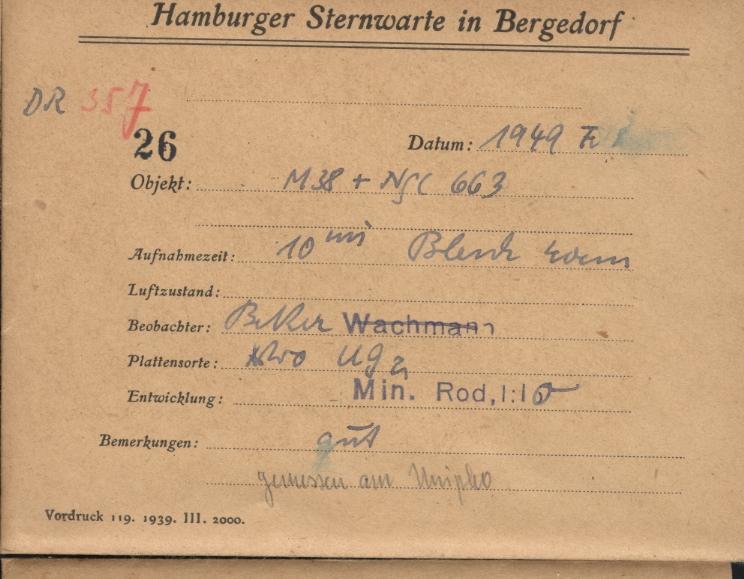 Hamburger Sternwarte in Bergedorf
DR 357
26
Datum: 1949
Objekt: M38 + NGC 663
Aufnahmezeit: 10 min Blende
Luftzustand:
Beobachter: Wachmann
Plattensorte:
Entwicklung: Min. Rod, 1:10
Bemerkungen: gut
gemessen am Unipho
Vordruck 119. 1939. III. 2000.